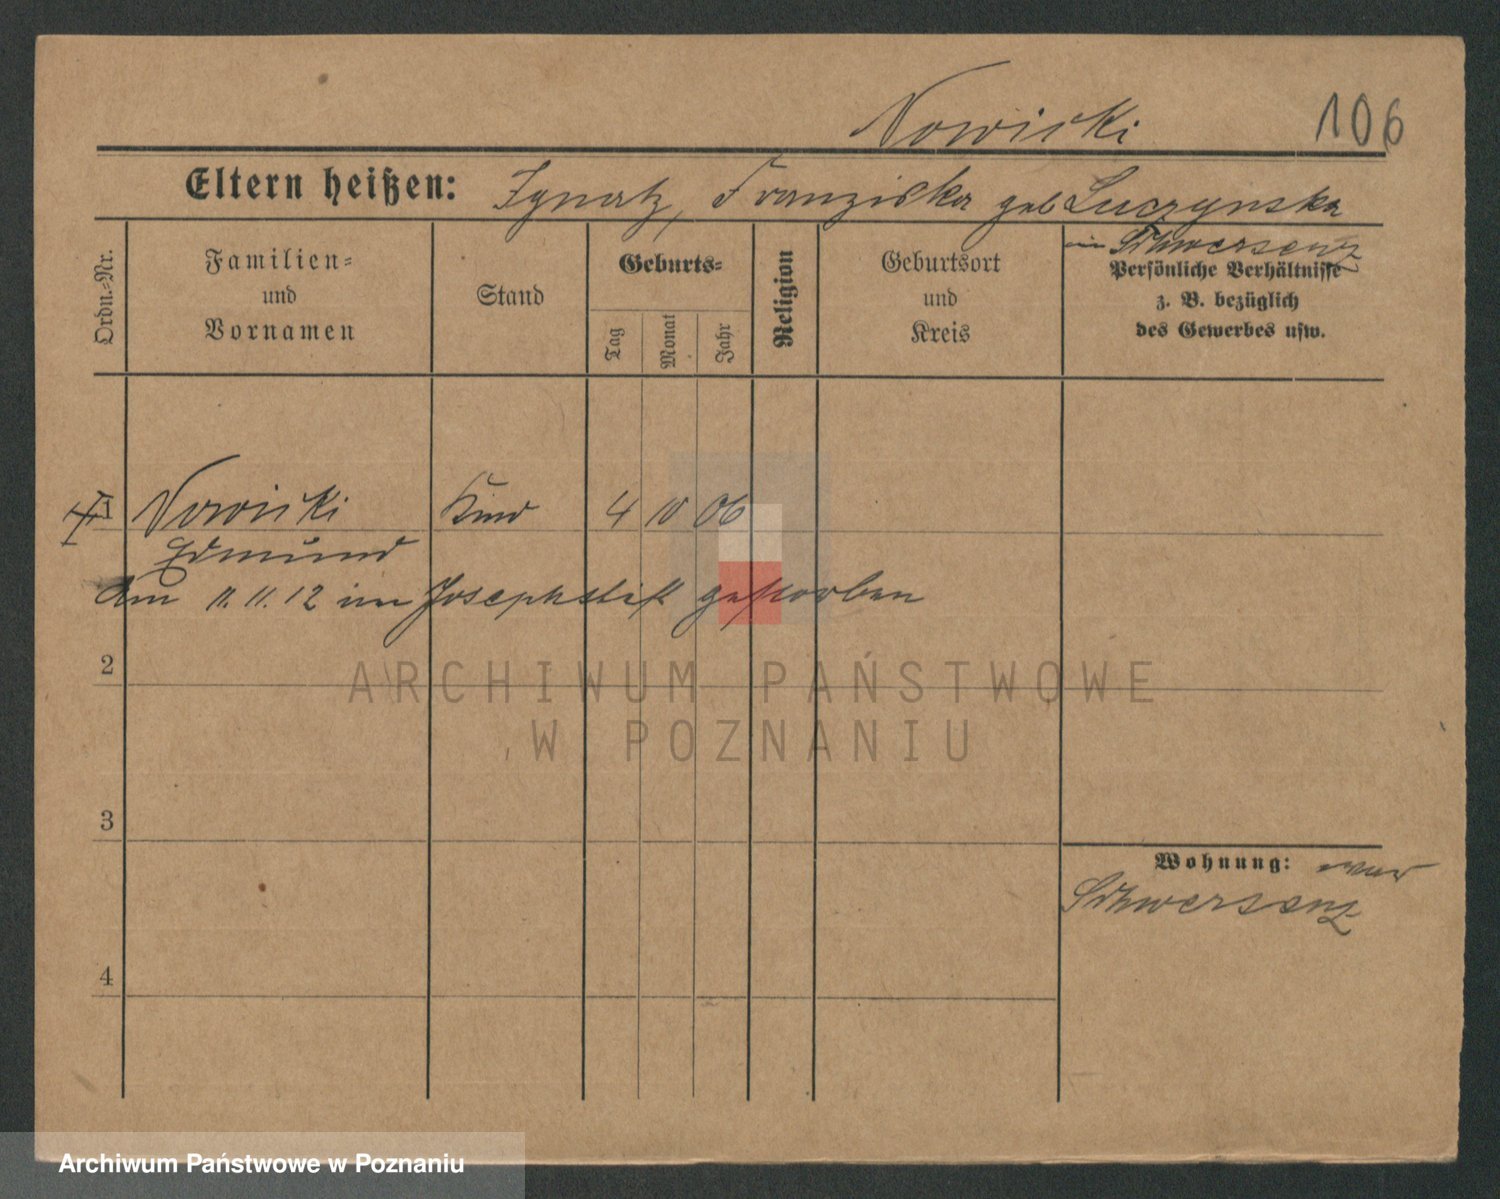 Nowicki 106
Eltern heißen: Ignatz, Franziska geb Luczynska
in Schwersenz
Ordn.-Nr.
Familien-
und
Vornamen
Stand
Geburts-
Tag
Monat
Jahr
Religion
Geburtsort
und
Kreis
Persönliche Verhältnisse
z. B. bezüglich
des Gewerbes usw.
1 Nowicki Kind 4 10 06
Edmund
Am 11. 11. 12 im Josephstift gestorben
2
ARCHIWUM PAŃSTWOWE
W POZNANIU
3
Wohnung:
Schwersenz
4
Archiwum Państwowe w Poznaniu